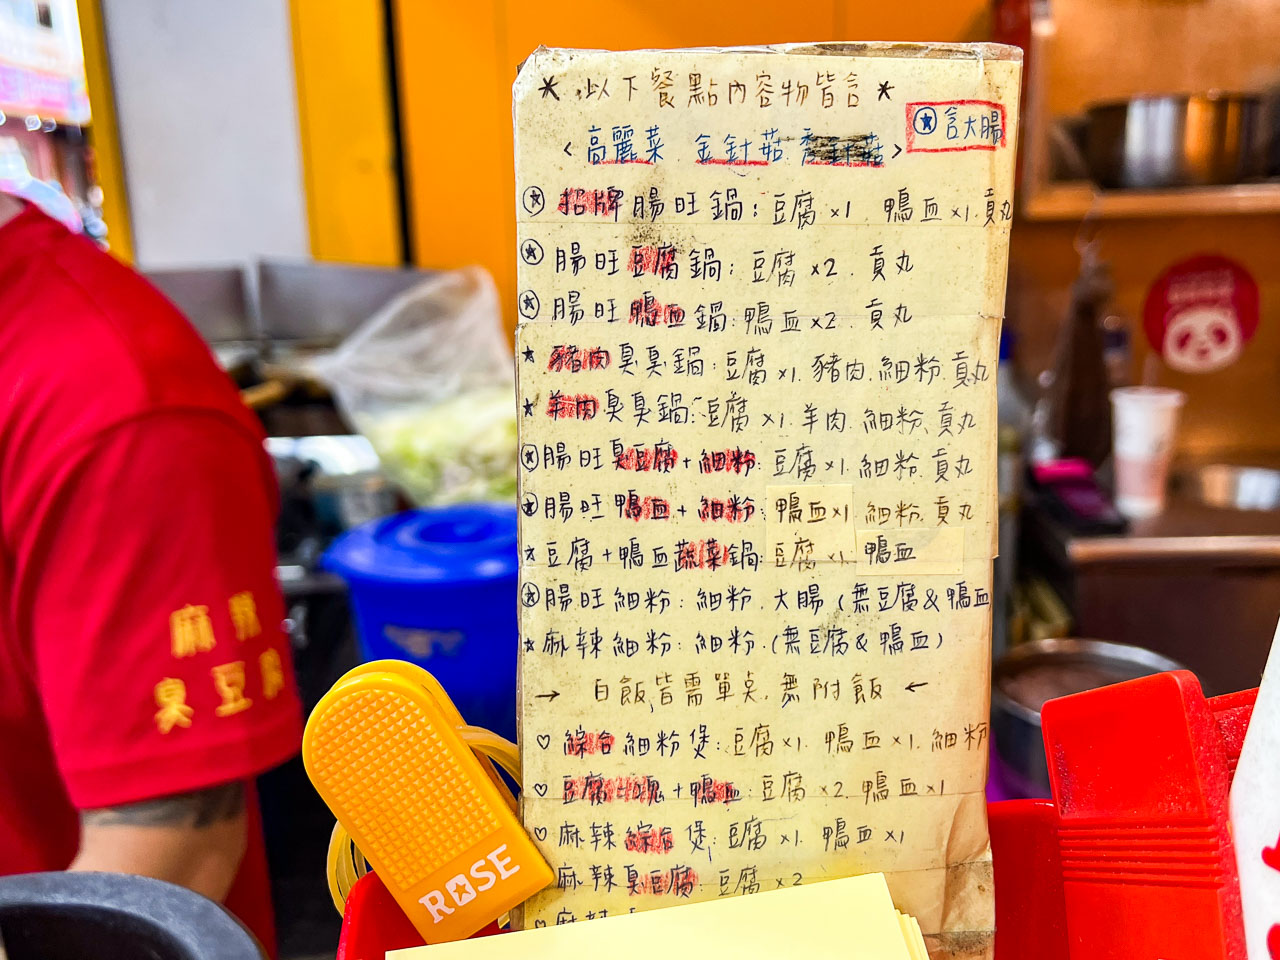 * 以下餐點內容物皆含 *
☆含大腸
<高麗菜 金針菇>
☆招牌腸旺鍋:豆腐x1 鴨血x1.貢丸
☆腸旺豆腐鍋:豆腐x2.貢丸
☆腸旺鴨血鍋:鴨血x2.貢丸
★豬肉臭臭鍋:豆腐x1.豬肉.細粉.貢丸
★羊肉臭臭鍋:豆腐x1.羊肉.細粉.貢丸
☆腸旺臭豆腐+細粉:豆腐x1.細粉.貢丸
☆腸旺鴨血+細粉:鴨血x1 細粉.貢丸
★豆腐+鴨血蔬菜鍋:豆腐x1.鴨血
☆腸旺細粉:細粉.大腸(無豆腐&鴨血
★麻辣細粉:細粉.(無豆腐&鴨血)
→ 白飯皆需單點.無附飯 ←
♡綜合細粉煲:豆腐x1.鴨血x1.細粉
♡豆腐+鴨血:豆腐x2.鴨血x1
♡麻辣綜合煲:豆腐x1.鴨血x1
麻辣臭豆腐:豆腐x2
♡麻辣
麻辣
臭豆腐
ROSE